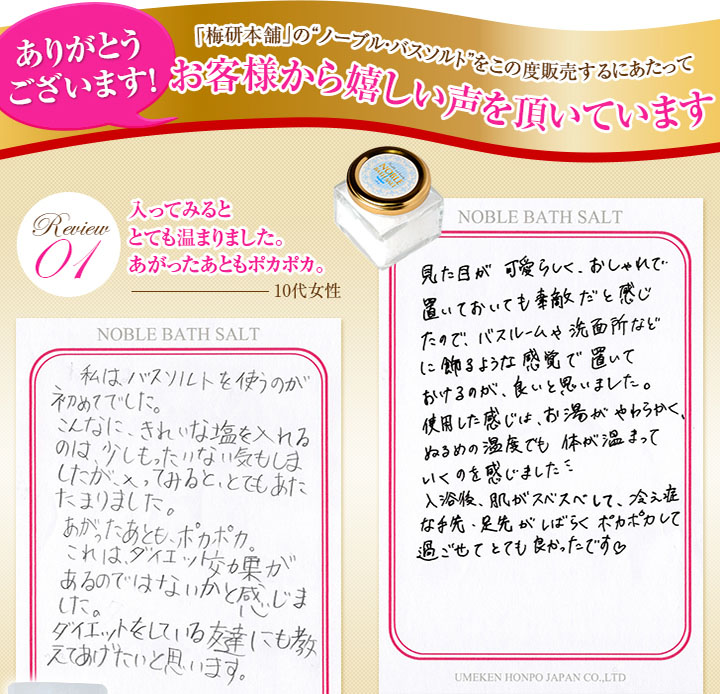 ありがとう
ございます!
「梅研本舗」の“ノーブル・バスソルト”をこの度販売するにあたって
お客様から嬉しい声を頂いています
Review
01
入ってみると
とても温まりました。
あがったあともポカポカ。
10代女性
NOBLE BATH SALT
私は、バスソルトを使うのが
初めてでした。
こんなに、きれいな塩を入れる
のは、少しもったいない気もしま
したが、入ってみると、とてもあた
たまりました。
あがったあとも、ポカポカ。
これは、ダイエット効果が
あるのではないかと感じま
した。
ダイエットをしている友達にも教
えてあげたいと思います。
NOBLE
NOBLE BATH SALT
見た目が可愛らしく、おしゃれで
置いておいても素敵だと感じ
たので、バスルームや洗面所など
に飾るような感覚で置いて
おけるのが、良いと思いました。
使用した感じは、お湯がやわらかく、
ぬるめの温度でも体が温まって
いくのを感じました
入浴後、肌がスベスベして、冷え症
な手先・足先がしばらくポカポカして
過ごせてとても良かったです♡
UMEKEN HONPO JAPAN CO.,LTD